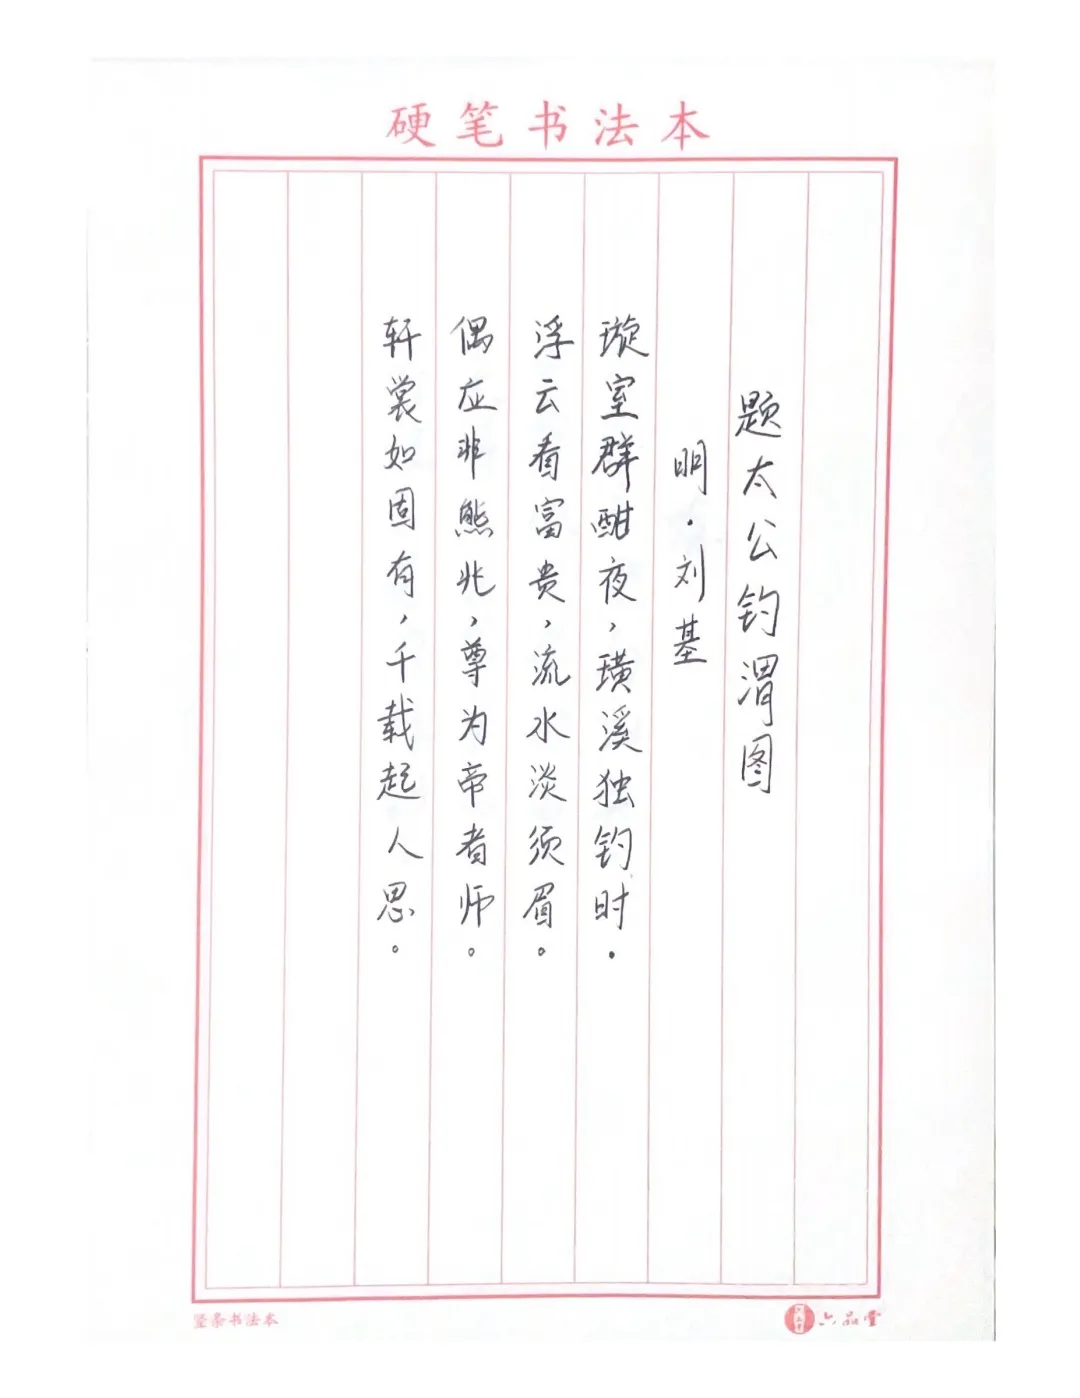 硬笔书法本
题太公钓渭图
明·刘基
璇室群酣夜，璜溪独钓时.
浮云看富贵，流水淡须眉。
偶应非熊兆，尊为帝者师。
轩裳如固有，千载起人思。
竖条书法本
六品堂